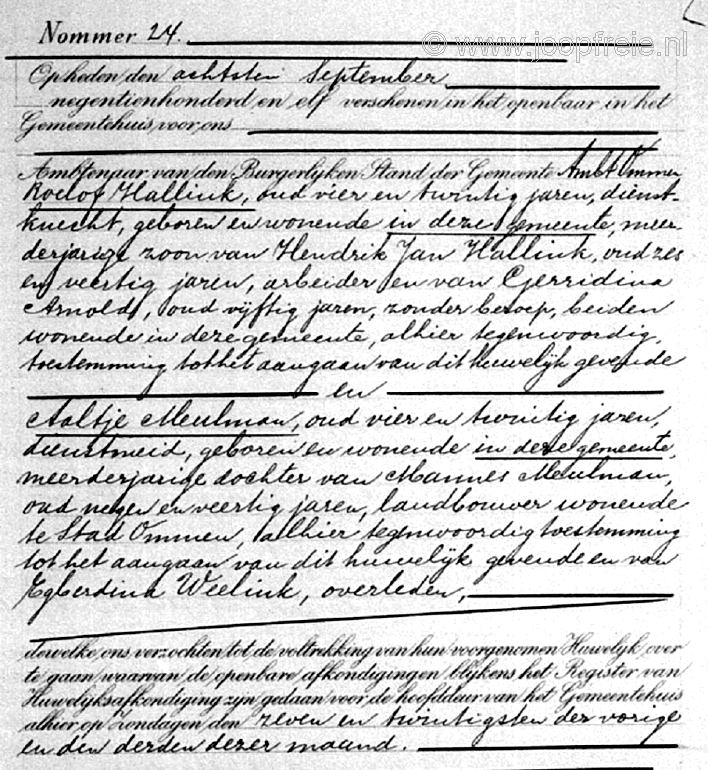 © www.joopfreie.nl
Nommer 24.
Op heden den achtsten September
negentienhonderd en elf verschenen in het openbaar in het
Gemeentehuis, voor ons
Ambtenaar van den Burgerlijken Stand der Gemeente Ambt Ommen
Roelof Hallink, oud vier en twintig jaren, dienst-
knecht, geboren en wonende in deze gemeente, meer-
derjarige zoon van Hendrik Jan Hallink, oud zes
en veertig jaren, arbeider en van Gerridina
Arnold, oud vijftig jaren, zonder beroep, beiden
wonende in deze gemeente, alhier tegenwoordig,
toestemming tot het aangaan van dit huwelijk gevende
en
Aaltje Meulman, oud vier en twintig jaren,
dienstmeid, geboren en wonende in deze gemeente,
meerderjarige dochter van Mannes Meulman,
oud negen en veertig jaren, landbouwer wonende
te Stad Ommen, alhier tegenwoordig toestemming
tot het aangaan van dit huwelijk gevende en van
Egberdina Weelink, overleden,
dewelke ons verzochten tot de voltrekking van hun voorgenomen Huwelijk over
te gaan waarvan de openbare afkondigingen blijkens het Register van
Huwelijksafkondiging zijn gedaan voor de hoofddeur van het Gemeentehuis
alhier op Zondagen den zeven en twintigsten der vorige
en den derden dezer maand.